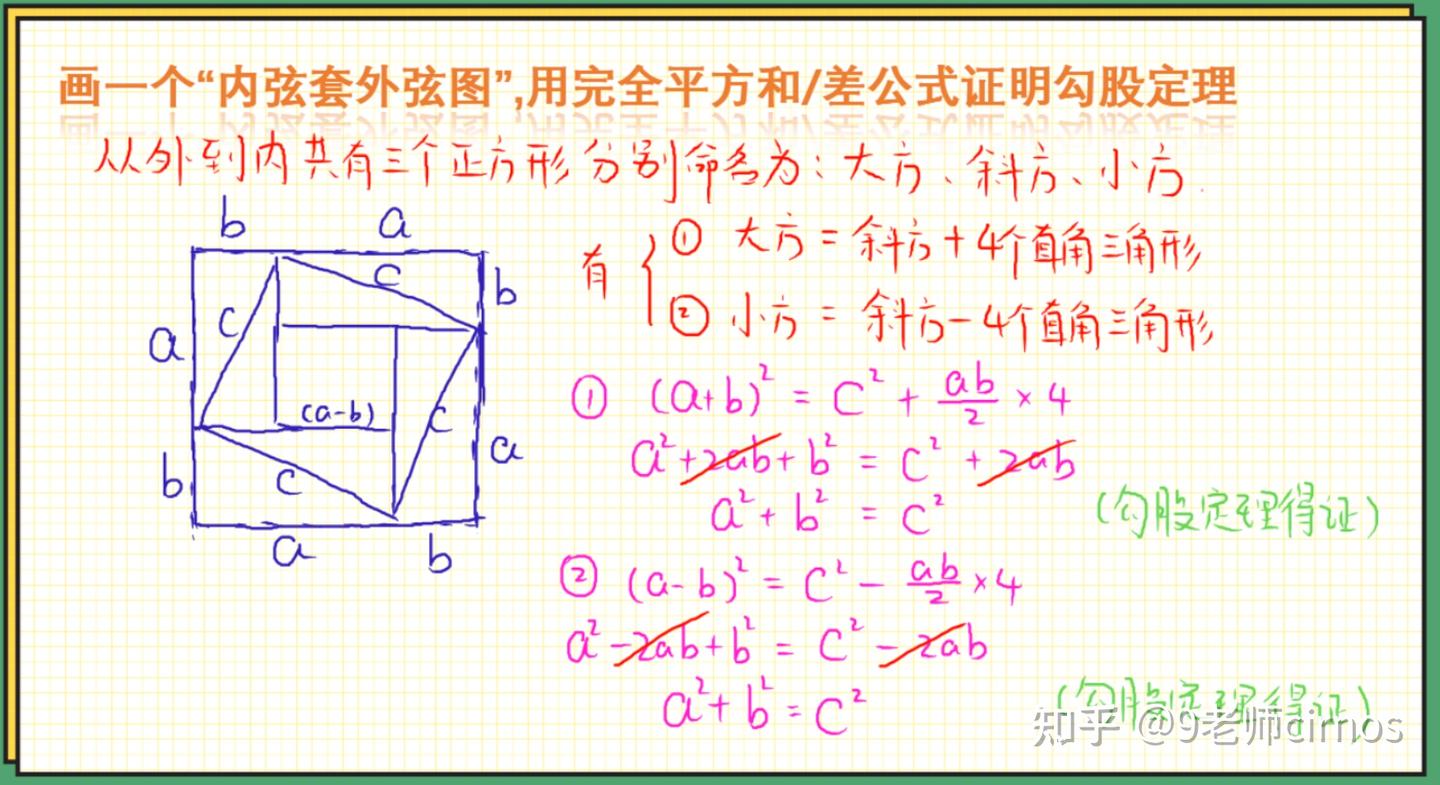 画一个“内弦套外弦图”,用完全平方和/差公式证明勾股定理
从外到内共有三个正方形分别命名为：大方、斜方、小方.
b a
有 ① 大方 = 斜方 + 4个直角三角形
② 小方 = 斜方 - 4个直角三角形
c b
c
a
(a-b) c
b c a
a b
① (a+b)² = c² + ab/2 × 4
a² + 2ab + b² = c² + 2ab
a² + b² = c² (勾股定理得证)
② (a-b)² = c² - ab/2 × 4
a² - 2ab + b² = c² - 2ab
a² + b² = c² (勾股定理得证)
知乎 @9老师cirnos